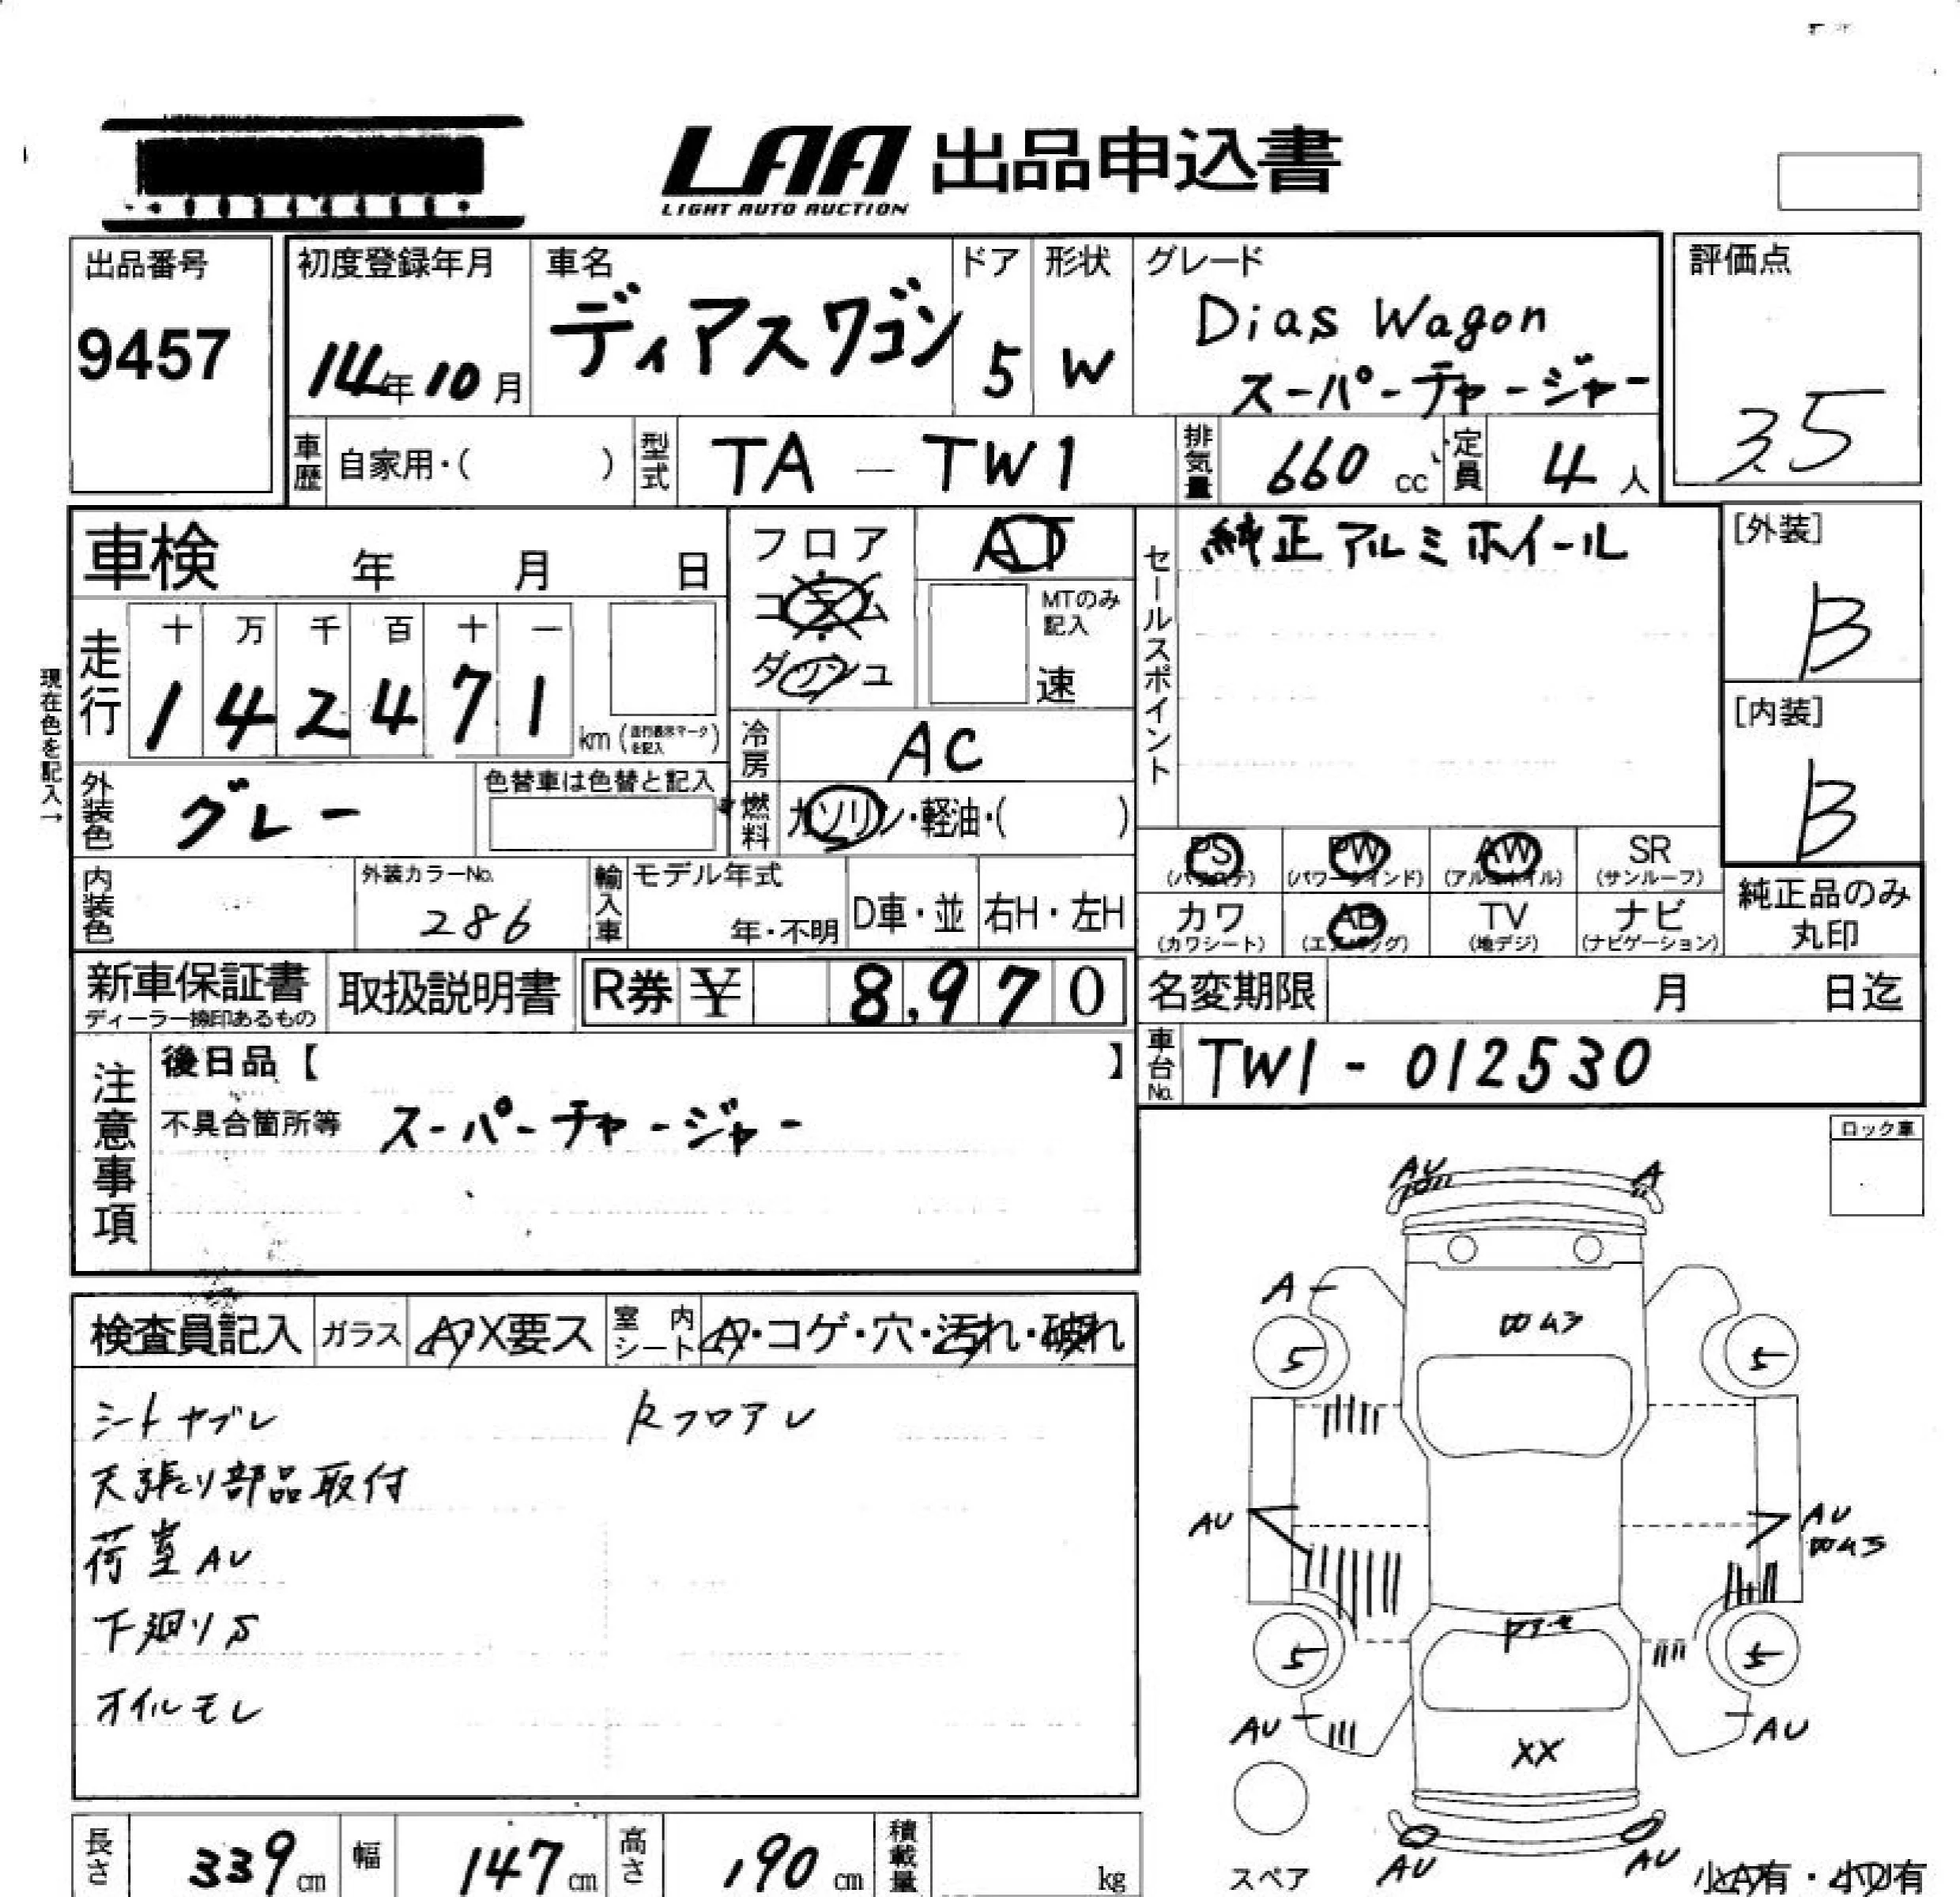 LAA 出品申込書
LIGHT AUTO AUCTION
出品番号
9457
初度登録年月
14年10月
車名
ディアスワゴン
ドア
5
形状
W
グレード
Dias Wagon
スーパーチャージャー
評価点
3.5
車歴 自家用・( )
型式 TA - TW1
排気量 660 cc
定員 4 人
車検 年 月 日
フロア
コラム
ダッシュ
AT
MTのみ
記入
速
セールスポイント
純正アルミホイール
[外装]
B
[内装]
B
現在色を記入→
走行
十 万 千 百 十 一
1 4 2 4 7 1 km (走行表示マークを記入)
冷房 AC
外装色 グレー
色替車は色替と記入
燃料 ガソリン・軽油・( )
PS
(パワステ)
PW
(パワーウインド)
AW
(アルミホイル)
SR
(サンルーフ)
カワ
(カワシート)
AB
(エアバッグ)
TV
(地デジ)
ナビ
(ナビゲーション)
純正品のみ
丸印
内装色
外装カラーNo.
286
輸入車
モデル年式
年・不明
D車・並
右H・左H
新車保証書
ディーラー捺印あるもの
取扱説明書
R券 ¥ 8,970
名変期限 月 日迄
車台No. TW1 - 012530
注意事項
後日品【 】
不具合箇所等 スーパーチャージャー
ロック車
検査員記入
ガラス A・X要ス
室内シート A・コゲ・穴・汚れ・破れ
シートヤブレ
Rフロアレ
天張り部品取付
荷室AU
下廻りS
オイルモレ
AU
A
A
5
5
AU
AU
5
5
AU
AU
XX
AU
AU
スペア
小A有・小U有
長さ 339 cm
幅 147 cm
高さ 190 cm
積載量 kg